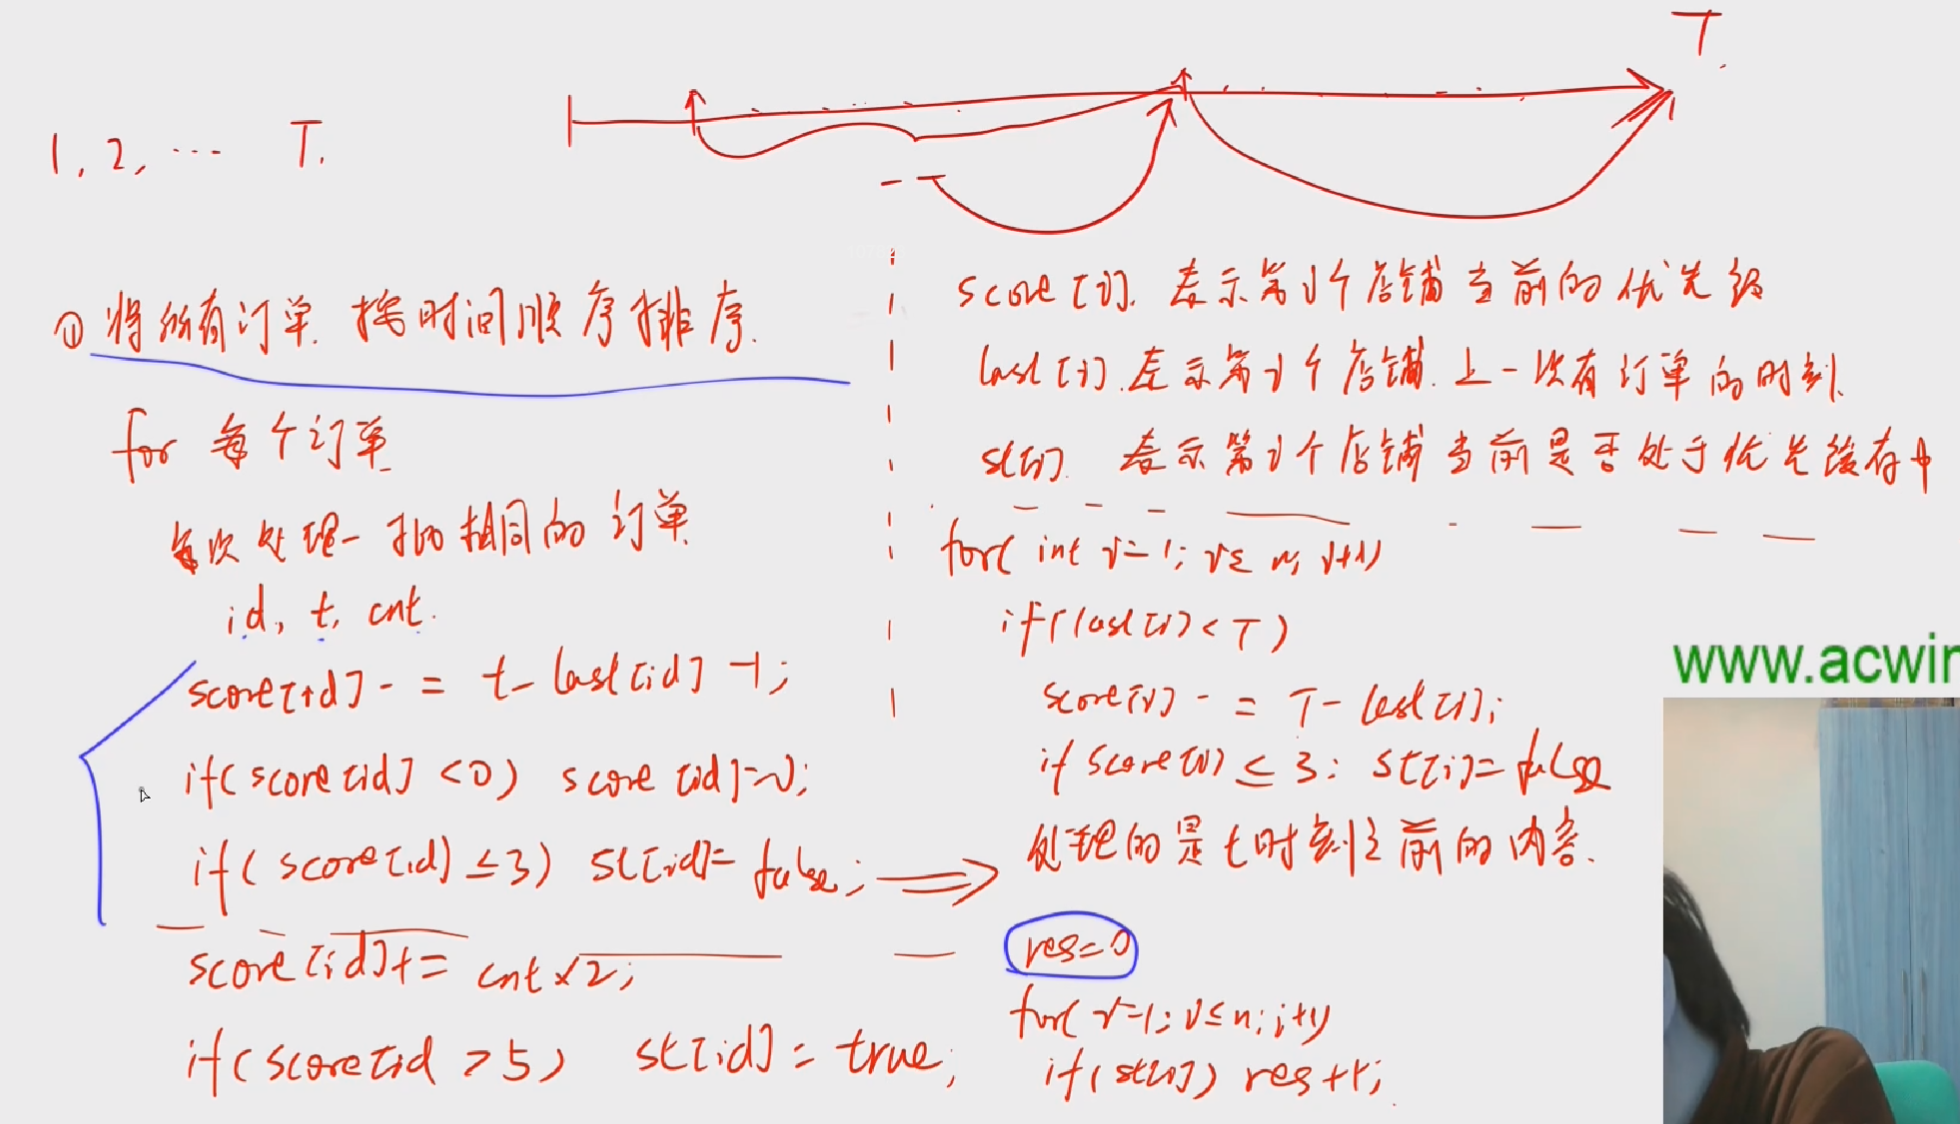 T.
1, 2, ... T.
① 将所有订单 按时间顺序排序.
for 每个订单
每次处理一批相同的订单
id, t, cnt.
score[id] -= t - last[id] - 1;
if( score[id] < 0 ) score[id] = 0;
if( score[id] ≤ 3 ) st[id] = false;
score[id] += cnt × 2;
if( score[id > 5 ) st[id] = true;
score[i]. 表示第i个店铺当前的优先级
last[i]. 表示第i个店铺. 上一次有订单的时刻.
st[i]. 表示第i个店铺当前是否处于优先缓存中
for( int i = 1; i ≤ n; i++)
if( last[i] < T )
score[i] -= T - last[i];
if score[i] ≤ 3: st[i] = false
处理的是t时刻之前的内容.
res=0
for( i=1; i≤n; i++)
if( st[i] ) res++;
www.acwin